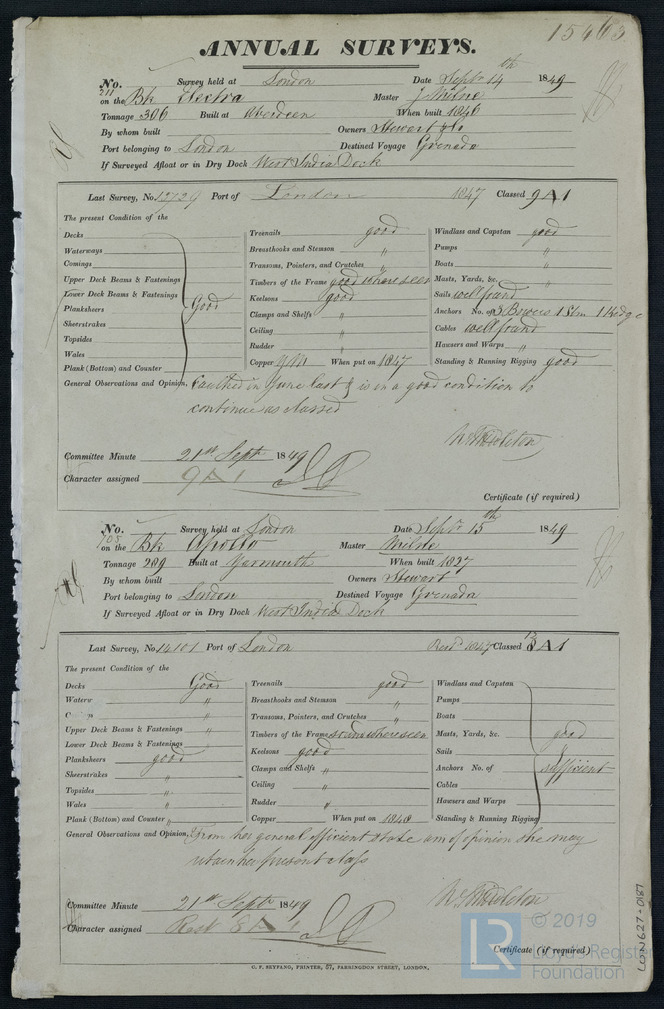 15463
ANNUAL SURVEYS.
No. 211 Survey held at London Date Septr 14th 1849
on the Bk Electra Master J Milne
Tonnage 306 Built at Aberdeen When built 1846
By whom built Owners Stewart & Co
Port belonging to London Destined Voyage Grenada
If Surveyed Afloat or in Dry Dock West India Dock
Last Survey, No. Port of London 1847 Classed 9 A 1
The present Condition of the
Decks
Waterways
Comings
Upper Deck Beams & Fastenings
Lower Deck Beams & Fastenings
Planksheers
Sheerstrakes
Topsides
Wales
Plank (Bottom) and Counter
Good
Treenails good
Breasthooks and Stemson "
Transoms, Pointers, and Crutches "
Timbers of the Frame good where seen
Keelsons good
Clamps and Shelfs "
Ceiling "
Rudder "
Copper YM When put on 1847
Windlass and Capstan good
Pumps "
Boats "
Masts, Yards, &c. "
Sails well found
Anchors No. of 3 Bowers 1 Stm 1 Kedge
Cables well found
Hawsers and Warps "
Standing & Running Rigging good
General Observations and Opinion, Caulked in June last & is in a good condition to
continue as classed
Wm Middleton
Committee Minute 21st Sept 1849
Character assigned 9 A 1
Certificate (if required)
No. 705 Survey held at London Date Septr 15th 1849
on the Bk Apollo Master Milne
Tonnage 289 Built at Yarmouth When built 1827
By whom built Owners Stewart
Port belonging to London Destined Voyage Grenada
If Surveyed Afloat or in Dry Dock West India Dock
Last Survey, No. 14101 Port of London Restd 1847 Classed A 1
The present Condition of the
Decks Good
Waterw "
C ings "
Upper Deck Beams & Fastenings "
Lower Deck Beams & Fastenings
Planksheers good
Sheerstrakes "
Topsides "
Wales "
Plank (Bottom) and Counter "
Treenails good
Breasthooks and Stemson "
Transoms, Pointers, and Crutches "
Timbers of the Frame where seen
Keelsons good
Clamps and Shelfs "
Ceiling "
Rudder "
Copper When put on 1848
Windlass and Capstan
Pumps
Boats
Masts, Yards, &c.
Sails
Anchors No. of
Cables
Hawsers and Warps
Standing & Running Rigging
good
&
sufficient
General Observations and Opinion, From her general efficient state am of opinion she may
retain her present class
Wm Middleton
Committee Minute 21st Septr 1849
Character assigned Rest 8 A 1
Certificate (if required)
G. F. SEYFANG, PRINTER, 57, FARRINGDON STREET, LONDON,
LON627-0187
LR
© 2019
Lloyd's Register
Foundation